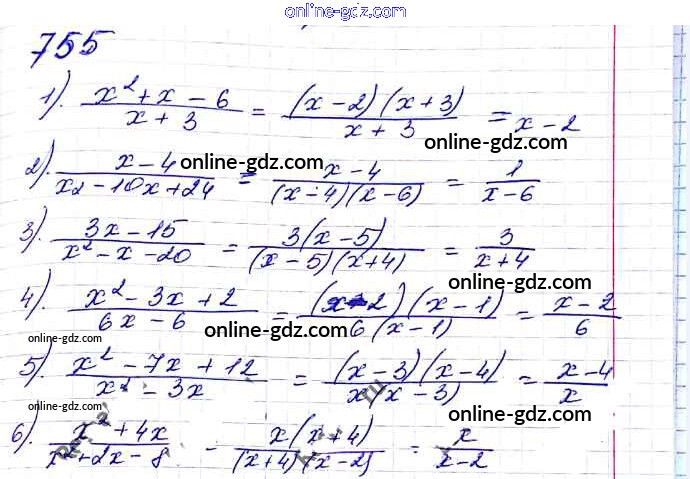 online-gdz.com
755
1). x² + x − 6 / x + 3 = (x − 2)(x + 3) / x + 3 = x − 2
online-gdz.com
2). x − 4 / x2 − 10x + 24 = x − 4 / (x − 4)(x − 6) = 1 / x − 6
online-gdz.com
3). 3x − 15 / x² − x − 20 = 3(x − 5) / (x − 5)(x + 4) = 3 / x + 4
online-gdz.com
4). x² − 3x + 2 / 6x − 6 = (x − 2)(x − 1) / 6(x − 1) = x − 2 / 6
online-gdz.com
online-gdz.com
5). x² − 7x + 12 / x² − 3x = (x − 3)(x − 4) / x(x − 3) = x − 4 / x
online-gdz.com
online-gdz.com
6). x² + 4x / x² + 2x − 8 = x(x + 4) / (x + 4)(x − 2) = x / x − 2